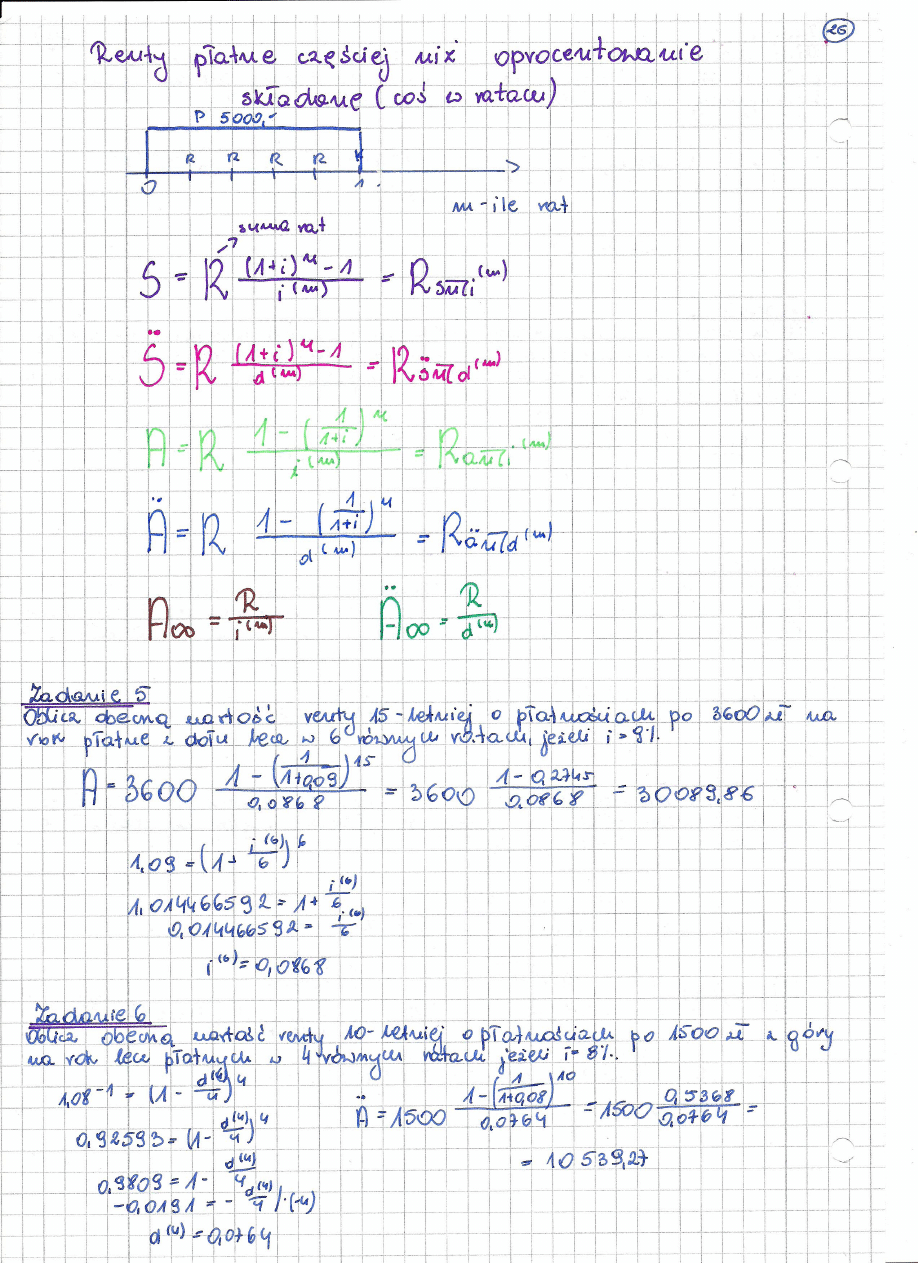 26
Renty płatne częściej niż oprocentowanie
składane (coś w ratach)
P 5000,-
R R R R
0 1
m - ile rat
suma rat
S = R \frac{(1+i)^n - 1}{i^{(m)}} = R s_{n̅|i}^{(m)}
S̈ = R \frac{(1+i)^n - 1}{d^{(m)}} = R s̈_{n̅|d}^{(m)}
A = R \frac{1 - (\frac{1}{1+i})^n}{i^{(m)}} = R a_{n̅|i}^{(m)}
Ä = R \frac{1 - (\frac{1}{1+i})^n}{d^{(m)}} = R ä_{n̅|d}^{(m)}
A∞ = \frac{R}{i^{(m)}} Ä∞ = \frac{R}{d^{(m)}}
Zadanie 5
Oblicz obecną wartość renty 15-letniej o płatnościach po 3600 zł na
rok płatne z dołu lecz w 6 równych ratach, jeżeli i = 9%.
A = 3600 \frac{1 - (\frac{1}{1+0,09})^{15}}{0,0868} = 3600 \frac{1 - 0,2745}{0,0868} = 30089,86
1,09 = (1 + \frac{i^{(6)}}{6})^6
1,014466592 = 1 + \frac{i^{(6)}}{6}
0,014466592 = \frac{i^{(6)}}{6}
i^{(6)} = 0,0868
Zadanie 6
Oblicz obecną wartość renty 10-letniej o płatnościach po 1500 zł z góry
na rok lecz płatnych w 4 równych ratach jeżeli i = 8%.
1,08^{-1} = (1 - \frac{d^{(4)}}{4})^4
0,92593 = (1 - \frac{d^{(4)}}{4})^4
0,9809 = 1 - \frac{d^{(4)}}{4}
-0,0191 = - \frac{d^{(4)}}{4} / · (-4)
d^{(4)} = 0,0764
Ä = 1500 \frac{1 - (\frac{1}{1+0,08})^{10}}{0,0764} = 1500 \frac{0,5368}{0,0764} =
= 10 539,27